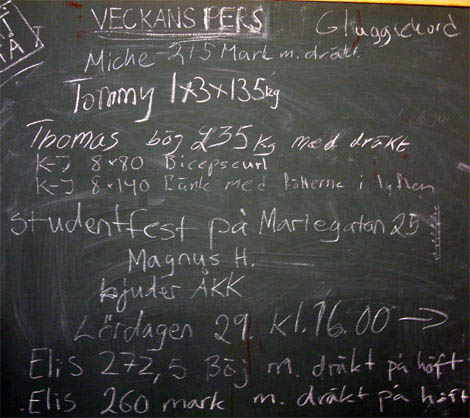 VECKANS PERS
Gluggrekord
Micke 215 Mark m. dräkt
Tommy 1x3x135kg
Thomas böj 235kg med dräkt
K-J 8x80 Bicepscurl
K-J 8x140 Bänk med fötterna i luften
Studentfest på Mariegatan 25
Magnus H.
bjuder AKK
Lördagen 29 kl.16.00 →
Elis 272,5 Böj m. dräkt på höft
Elis 260 mark m. dräkt på höft